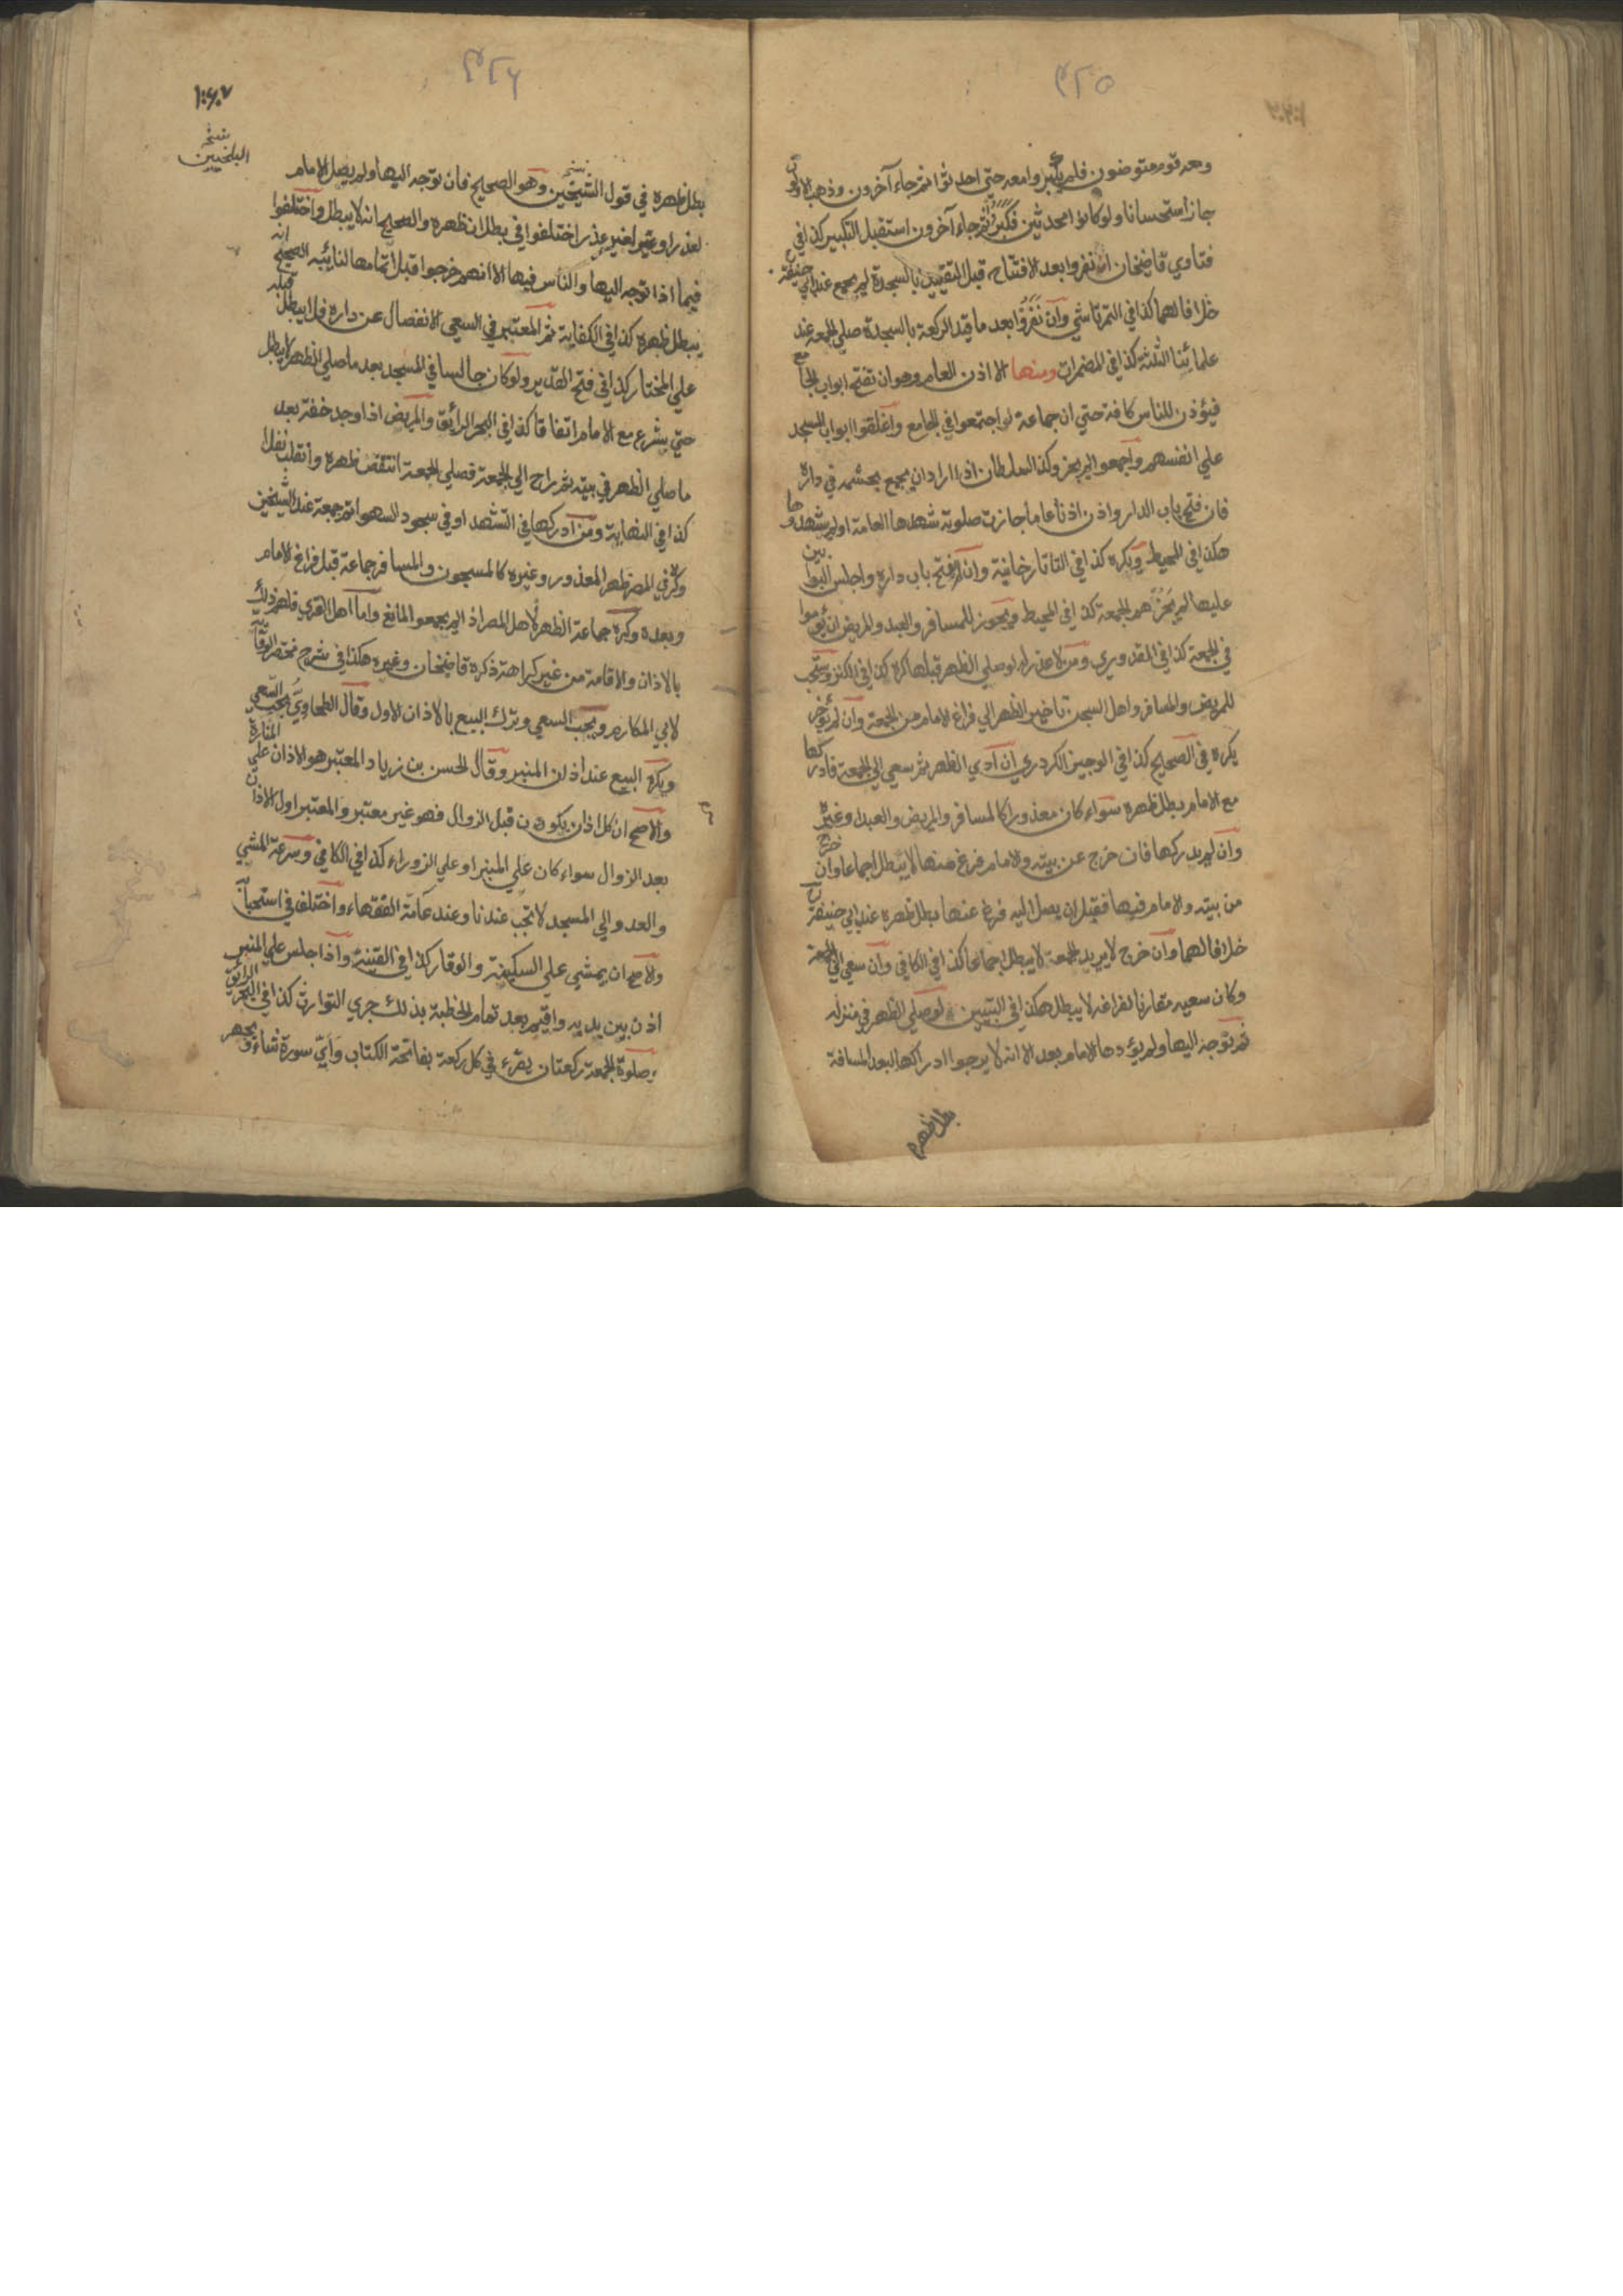 ٤٢٥
ومعه قوم متوضئون فلم يكبروا معه حتى احدثوا ثم جاء آخرون وذهب الاولون
جاز استحسانا ولو كانوا محدثين فكبر ثم جاء آخرون استقبل التكبير كذا في
فتاوي قاضيخان ان نفروا بعد الافتتاح قبل التقييد بالسجدة لم يجمع عند ابي حنيفة رح
خلافا لهما كذا في التمرتاشي وان نفروا بعد ما قيد الركعة بالسجدة صلي الجمعة عند
علمائنا الثلثة كذا في المضمرات ومنها الاذن العام وهو ان تفتح ابواب الجامع
فيؤذن للناس كافة حتي ان جماعة لو اجتمعوا في الجامع واغلقوا ابواب المسجد
علي انفسهم واجمعوا لم يجز وكذا السلطان اذا اراد ان يجمع بحشمه في داره
فان فتح باب الدار واذن اذنا عاما جازت صلوته شهدها العامة او لم يشهدوها
هكذا في المحيط ويكره كذا في التاتارخانية وان لم يفتح باب داره واجلس البوابين
عليها لم يجزهم الجمعة كذا في المحيط ويجوز للمسافر والعبد والمريض ان يؤموا
في الجمعة كذا في القدوري ومن لا عذر له لو صلي الظهر قبلها كره كذا في الكنز ويستحب
للمريض والمسافر واهل السجن تاخير الظهر الي فراغ الامام من الجمعة وان لم يؤخر
يكره في الصحيح كذا في الوجيز الكردري ان ادي الظهر ثم سعي الي الجمعة فادركها
مع الامام بطل ظهره سواء كان معذورا كالمسافر والمريض والعبد او غيره
وان لم يدركها فان خرج عن بيته والامام فرغ منها لا يبطل اجماعا وان خرج
من بيته والامام فيها فقبل ان يصل اليه فرغ عنها بطل ظهره عند ابي حنيفة رح
خلافا لهما وان خرج لا يريد الجمعة لا يبطل اجماعا كذا في الكافي وان سعي الي الجمعة
وكان سعيه مقارنا لفراغه لا يبطل هكذا في التبيين لو صلي الظهر في منزله
ثم توجه اليها ولم يؤدها الامام بعد الا انه لا يرجوا ادراكها لبعد المسافة
بطل ظهره
٤٢٦
١٠٦٠٧
نسخه
البلخيين
بطل ظهره في قول الشيخين وهو الصحيح فان توجه اليها ولم يصل الامام
لعذر او غير لغير عذر اختلفوا في بطلان ظهره والصحيح انه لا يبطل واختلفوا
فيما اذا توجه اليها والناس فيها الا انهم خرجوا قبل اتمامها لنائبة الصحيح انه
يبطل ظهره كذا في الكفاية ثم المعتبر في السعي الانفصال عن داره فلا يبطل قبله
علي المختار كذا في فتح القدير ولو كان جالسا في المسجد بعد ما صلي الظهر لا يبطل
حتي يشرع مع الامام اتفاقا كذا في البحر الرائق والمريض اذا وجد خفة بعد
ما صلي الظهر في بيته ثم راح الي الجمعة فصلي الجمعة انتقض ظهره وانقلب نفلا
كذا في النهاية ومن ادركها في التشهد او في سجود السهو اتم جمعة عند الشيخين
وكره في المصر ظهر المعذور وغيره كالمسجون والمسافر جماعة قبل فراغ الامام
وبعده وكره جماعة الظهر لاهل المصر اذ لم يجمعوا لمانع واما اهل القري فلهم ذلك
بالاذان والاقامة من غير كراهة ذكره قاضيخان وغيره هكذا في شرح مختصر الوقاية
لابي المكارم ويجب السعي وترك البيع بالاذان الاول وقال الطحاوي يجب السعي
ويكره البيع عند اذان المنبر وقال الحسن بن زياد المعتبر هو الاذان علي المنارة
والاصح ان كل اذان يكون قبل الزوال فهو غير معتبر والمعتبر اول الاذان
بعد الزوال سواء كان علي المنبر او علي الزوراء كذا في الكافي وسرعة المشي
والعدو الي المسجد لا تجب عندنا وعند عامة الفقهاء واختلف في استحبابه
والاصح ان يمشي علي السكينة والوقار كذا في القنية واذا جلس علي المنبر
اذن بين يديه واقيم بعد تمام الخطبة بذلك جري التوارث كذا في البحر الرائق
وصلوة الجمعة ركعتان يقرء في كل ركعة بفاتحة الكتاب واي سورة شاء ويجهر